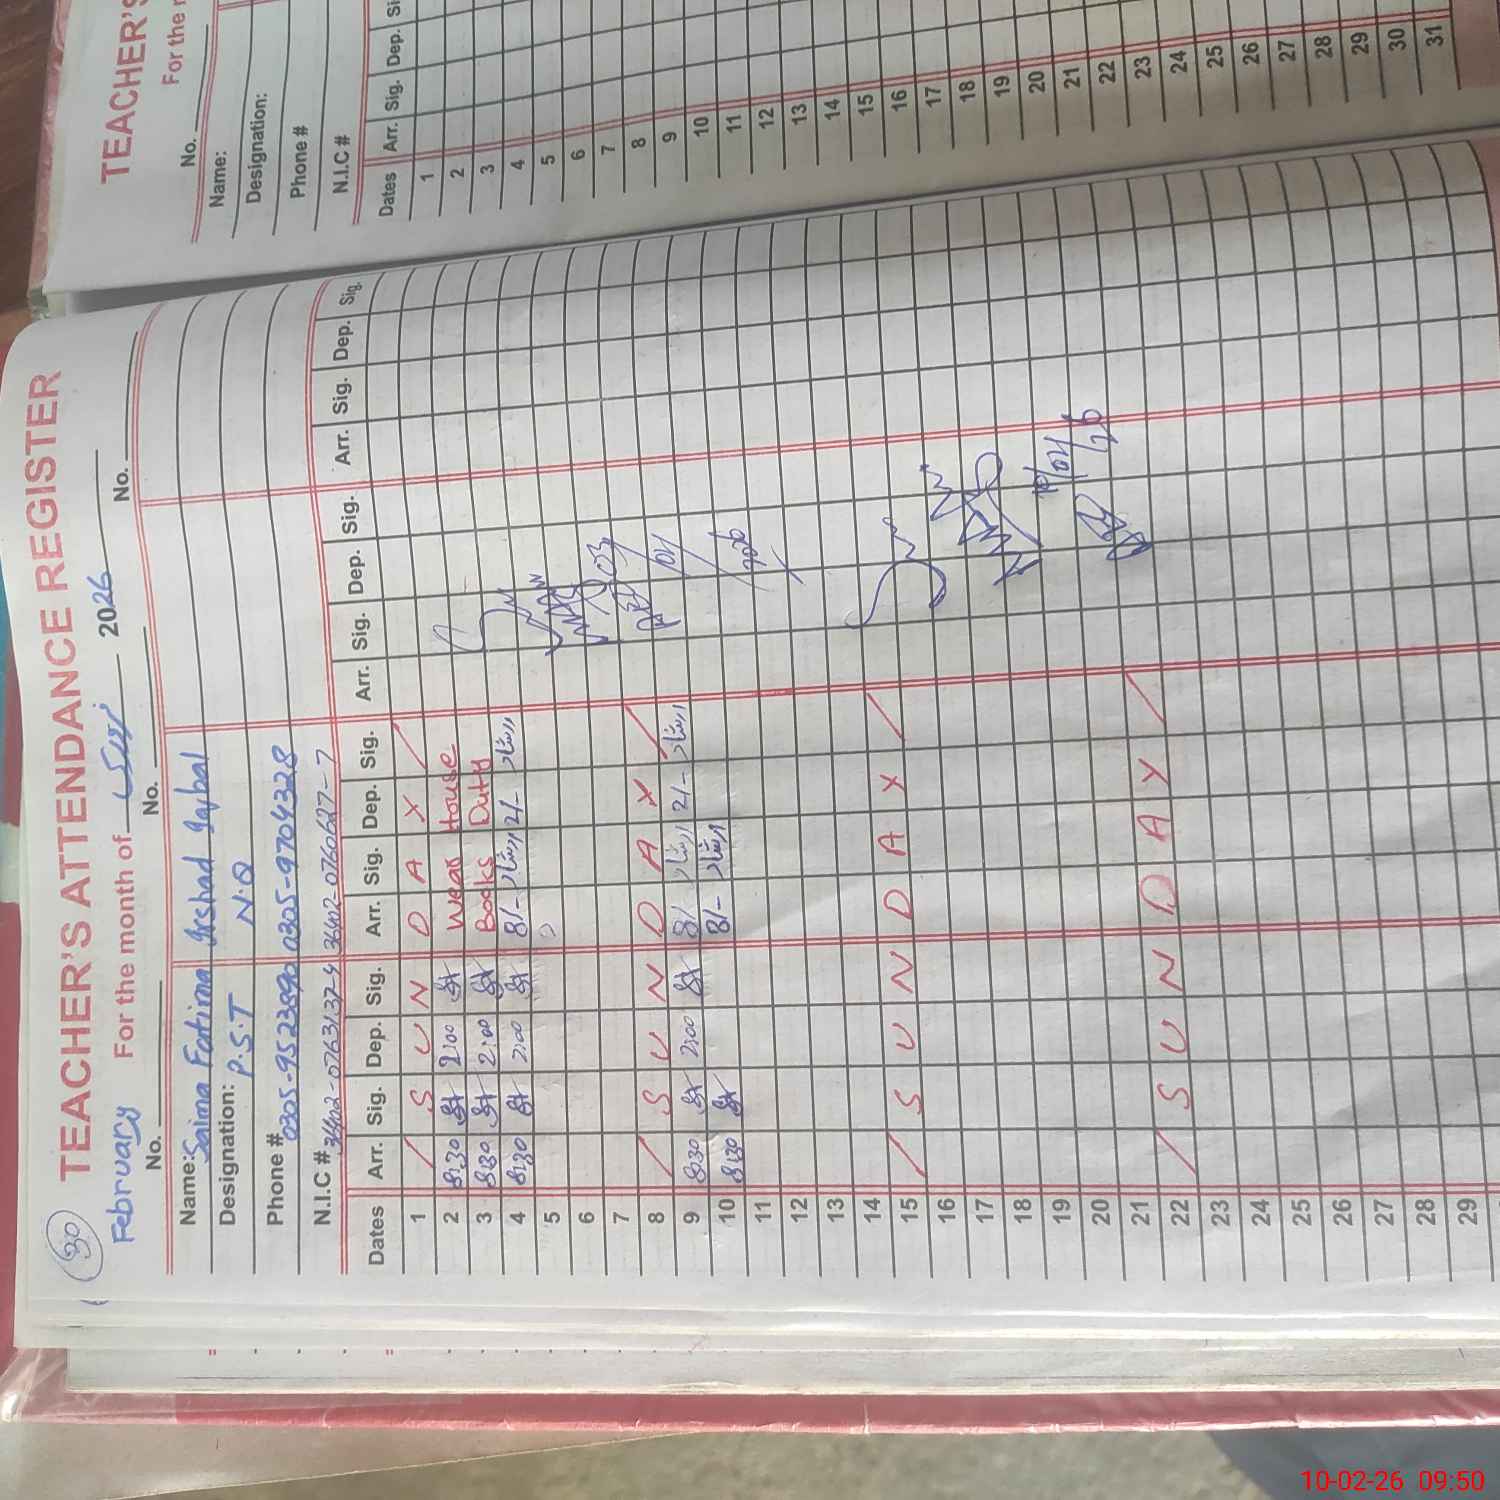 30
TEACHER'S ATTENDANCE REGISTER
February For the month of فروری 2026
No. No. No.
Name: Saima Fatima Irshad Iqbal
Designation: P.S.T N.Q
Phone # 0305-9523890 0305-9704328
N.I.C #
Dates Arr. Sig. Dep. Sig. Arr. Sig. Dep. Sig. Arr. Sig. Dep. Sig. Arr. Sig. Dep. Sig.
1 S U N D A Y
2 8:30 2:00 Wear House
3 8:30 2:00 Books Duty
4 8:30 2:00 8/- ارشاد 2/- ارشاد
5
6
7
8 S U N D A Y
9 8:30 2:00 8/- ارشاد 2/- ارشاد
10 8:30 8/- ارشاد
11
12
13
14
15 S U N D A Y
16
17
18
19
20
21
22 S U N D A Y
23
24
25
26
27
28
29
TEACHER'S
For the
No.
Name:
Designation:
Phone #
N.I.C #
Dates Arr. Sig. Dep.
1
2
3
4
5
6
7
8
9
10
11
12
13
14
15
16
17
18
19
20
21
22
23
24
25
26
27
28
29
30
31
10-02-26 09:50